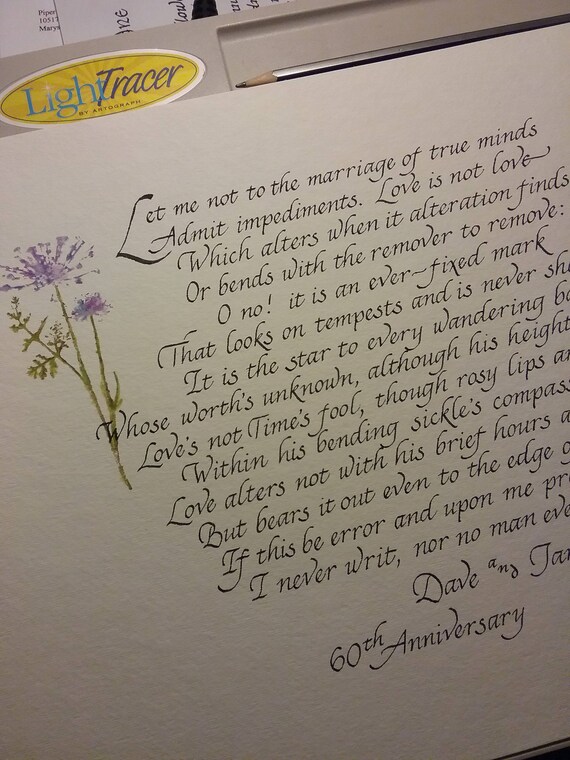 Piper
10517
Mary
Light Tracer
BY ARTOGRAPH
Let me not to the marriage of true minds
Admit impediments. Love is not love
Which alters when it alteration finds
Or bends with the remover to remove:
O no! it is an ever-fixed mark
That looks on tempests and is never sh
It is the star to every wandering ba
Whose worth's unknown, although his height
Love's not Time's fool, though rosy lips an
Within his bending sickle's compass
Love alters not with his brief hours a
But bears it out even to the edge o
If this be error and upon me pr
I never writ, nor no man eve
Dave and Jan
60th Anniversary